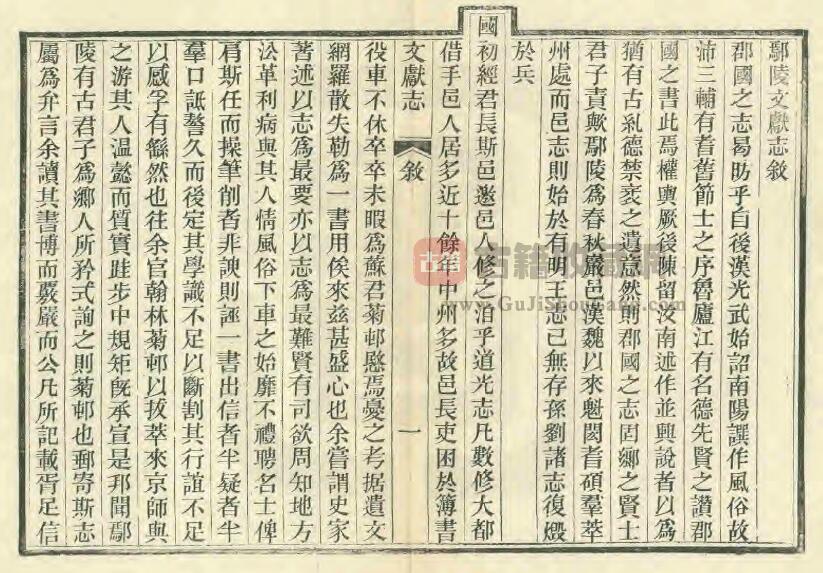 鄢陵文獻志敘
郡國之志昜昉乎自後漢光武始詔南陽譔作風俗故
沛三輔有耆舊節士之序魯廬江有名德先賢之讚郡
國之書此焉權輿厥後陳留汝南述作並興說者以爲
猶有古糺德禁衺之遺意然則郡國之志固鄉之賢士
君子責歟鄢陵爲春秋巖邑漢魏以來魁閎耆碩羣萃
州處而邑志則始於有明王志已無存孫劉諸志復燬
於兵
國初經君長斯邑邀邑人修之洎乎道光志凡數修大都
借手邑人居多近十餘年中州多故邑長吏困於簿書
文獻志
敘
一
役車不休卒卒未暇爲蘇君菊邨慜焉憂之考據遺文
網羅散失勒爲一書用俟來玆甚盛心也余嘗謂史家
著述以志爲最要亦以志爲最難賢有司欲周知地方
沿革利病與其人情風俗下車之始靡不禮聘名士俾
肩斯任而操筆削者非諛則誣一書出信者半疑者半
羣口詆謷久而後定其學識不足以斷割其行誼不足
以感孚有繇然也往余官翰林菊邨以拔萃來京師與
之游其人溫懿而質實跬步中規矩旣承宣是邦聞鄢
陵有古君子爲鄉人所矜式詢之則菊邨也郵寄斯志
屬爲弁言余讀其書博而覈嚴而公凡所記載胥足信
古籍
古籍收藏网
www.GuJiShouCang.com